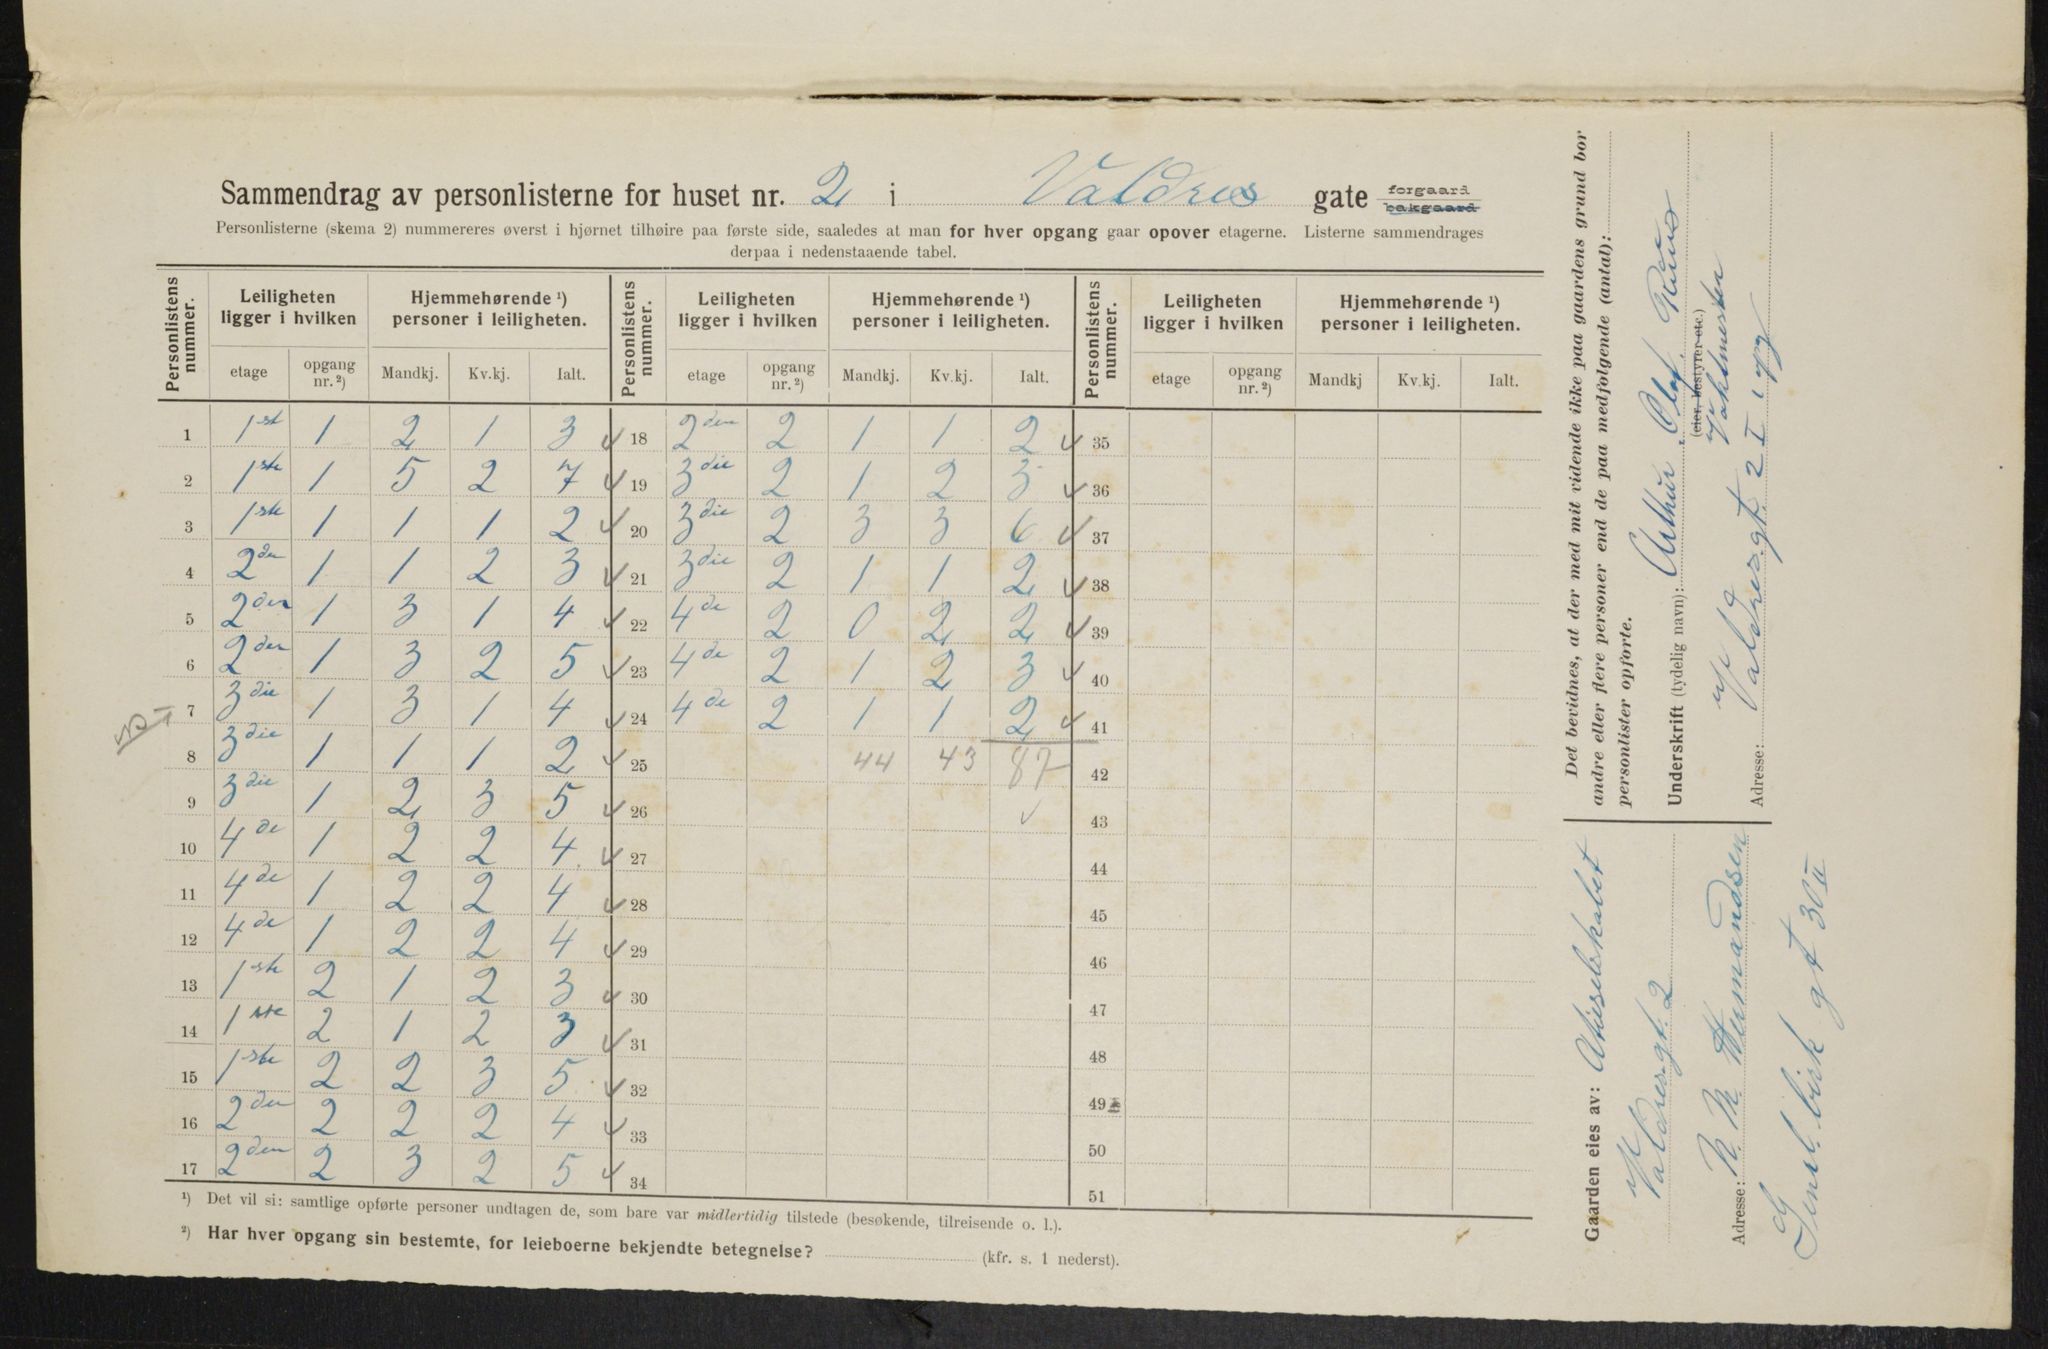 Sammendrag av personlisterne for huset nr. 2 i Valdres gate forgaard bakgaard
Personlisterne (skema 2) nummereres øverst i hjørnet tilhøire paa første side, saaledes at man for hver opgang gaar opover etagerne. Listerne sammendrages
derpaa i nedenstaaende tabel.
Personlistens nummer. Leiligheten ligger i hvilken Hjemmehørende ¹) personer i leiligheten. Personlistens nummer. Leiligheten ligger i hvilken Hjemmehørende ¹) personer i leiligheten. Personlistens nummer. Leiligheten ligger i hvilken Hjemmehørende ¹) personer i leiligheten.
etage opgang nr. ²) Mandkj. Kv.kj. Ialt. etage opgang nr. ²) Mandkj. Kv.kj. Ialt. etage opgang nr. ²) Mandkj Kv.kj. Ialt.
1 1st 1 2 1 3 ✓ 18 2den 2 1 1 2 ✓ 35
2 1ste 1 5 2 7 ✓ 19 3die 2 1 2 3 ✓ 36
3 1ste 1 1 1 2 ✓ 20 3die 2 3 3 6 ✓ 37
4 2den 1 1 2 3 ✓ 21 3die 2 1 1 2 ✓ 38
5 2den 1 3 1 4 ✓ 22 4de 2 0 2 2 ✓ 39
6 2den 1 3 2 5 ✓ 23 4de 2 1 2 3 ✓ 40
7 3die 1 3 1 4 ✓ 24 4de 2 1 1 2 ✓ 41
8 3die 1 1 1 2 ✓ 25 44 43 87 42
9 3die 1 2 3 5 ✓ 26 ✓ 43
10 4de 1 2 2 4 ✓ 27 44
11 4de 1 2 2 4 ✓ 28 45
12 4de 1 2 2 4 ✓ 29 46
13 1ste 2 1 2 3 ✓ 30 47
14 1ste 2 1 2 3 ✓ 31 48
15 1ste 2 2 3 5 ✓ 32 49
16 2den 2 2 2 4 ✓ 33 50
17 2den 2 3 2 5 ✓ 34 51
¹) Det vil si: samtlige opførte personer undtagen de, som bare var midlertidig tilstede (besøkende, tilreisende o. l.).
²) Har hver opgang sin bestemte, for leieboerne bekjendte betegnelse? (kfr. s. 1 nederst).
Det bevidnes, at der med mit vidende ikke paa gaardens grund bor
andre eller flere personer end de paa medfølgende (antal):
personlister opførte.
Underskrift (tydelig navn): Arthur Olaf
(eier, bestyrer etc.)
Vaktmester
Adresse: Valdresgt. 2 I 1 opg
Gaarden eies av: Aktieselskabet
Valdresgt. 2
Adresse: N. M. Hermandsen
Genl. birk gt 30 II